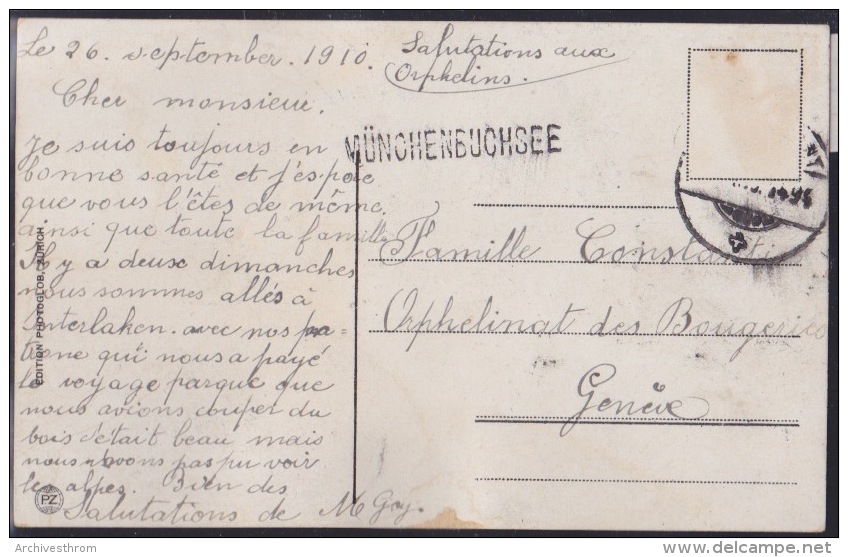 Le 26. september. 1910.
Salutations aux
Orphelins.
Cher monsieur.
Je suis toujours en
bonne santé et j'espoie
que vous l'êtes de même,
ainsi que toute la famille
Il y a deux dimanches
nous sommes allés à
Interlaken. avec nos pa-
trone qui nous a payé
le voyage parque que
nous avions couper du
bois c'était beau mais
nous n'avons pas pu voir
les alpes. Bien des
Salutations de M Goy.
MÜNCHENBUCHSEE
Famille Constantin
Orphelinat des Bougeries
Genève
EDITION PHOTOGLOB, ZÜRICH
PZ
Archivesthrom
delcampe.net